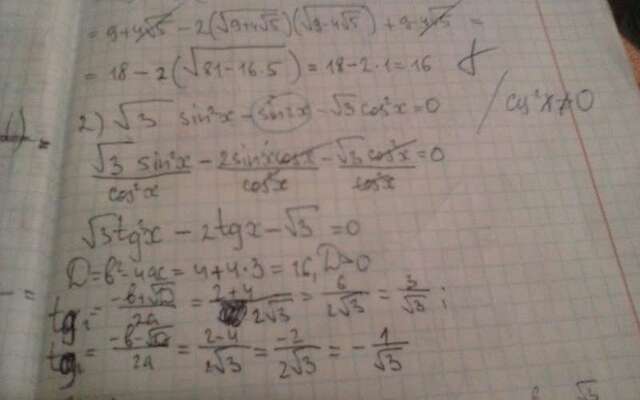 = 9+4√5 − 2(√9+4√5)(√9−4√5) + 9−4√5 =
= 18 − 2(√81−16·5) = 18−2·1 = 16
2) √3 sin²x − sin2x − √3 cos²x = 0 / cos²x ≠ 0
√3 sin²x/cos²x − 2sinxcosx/cos²x − √3 cos²x/cos²x = 0
√3 tg²x − 2tgx − √3 = 0
D = b² − 4ac = 4+4·3 = 16, D>0
tg₁ = −b+√D/2a = 2+4/2√3 = 6/2√3 = 3/√3 ;
tg₂ = −b−√D/2a = 2−4/2√3 = −2/2√3 = − 1/√3